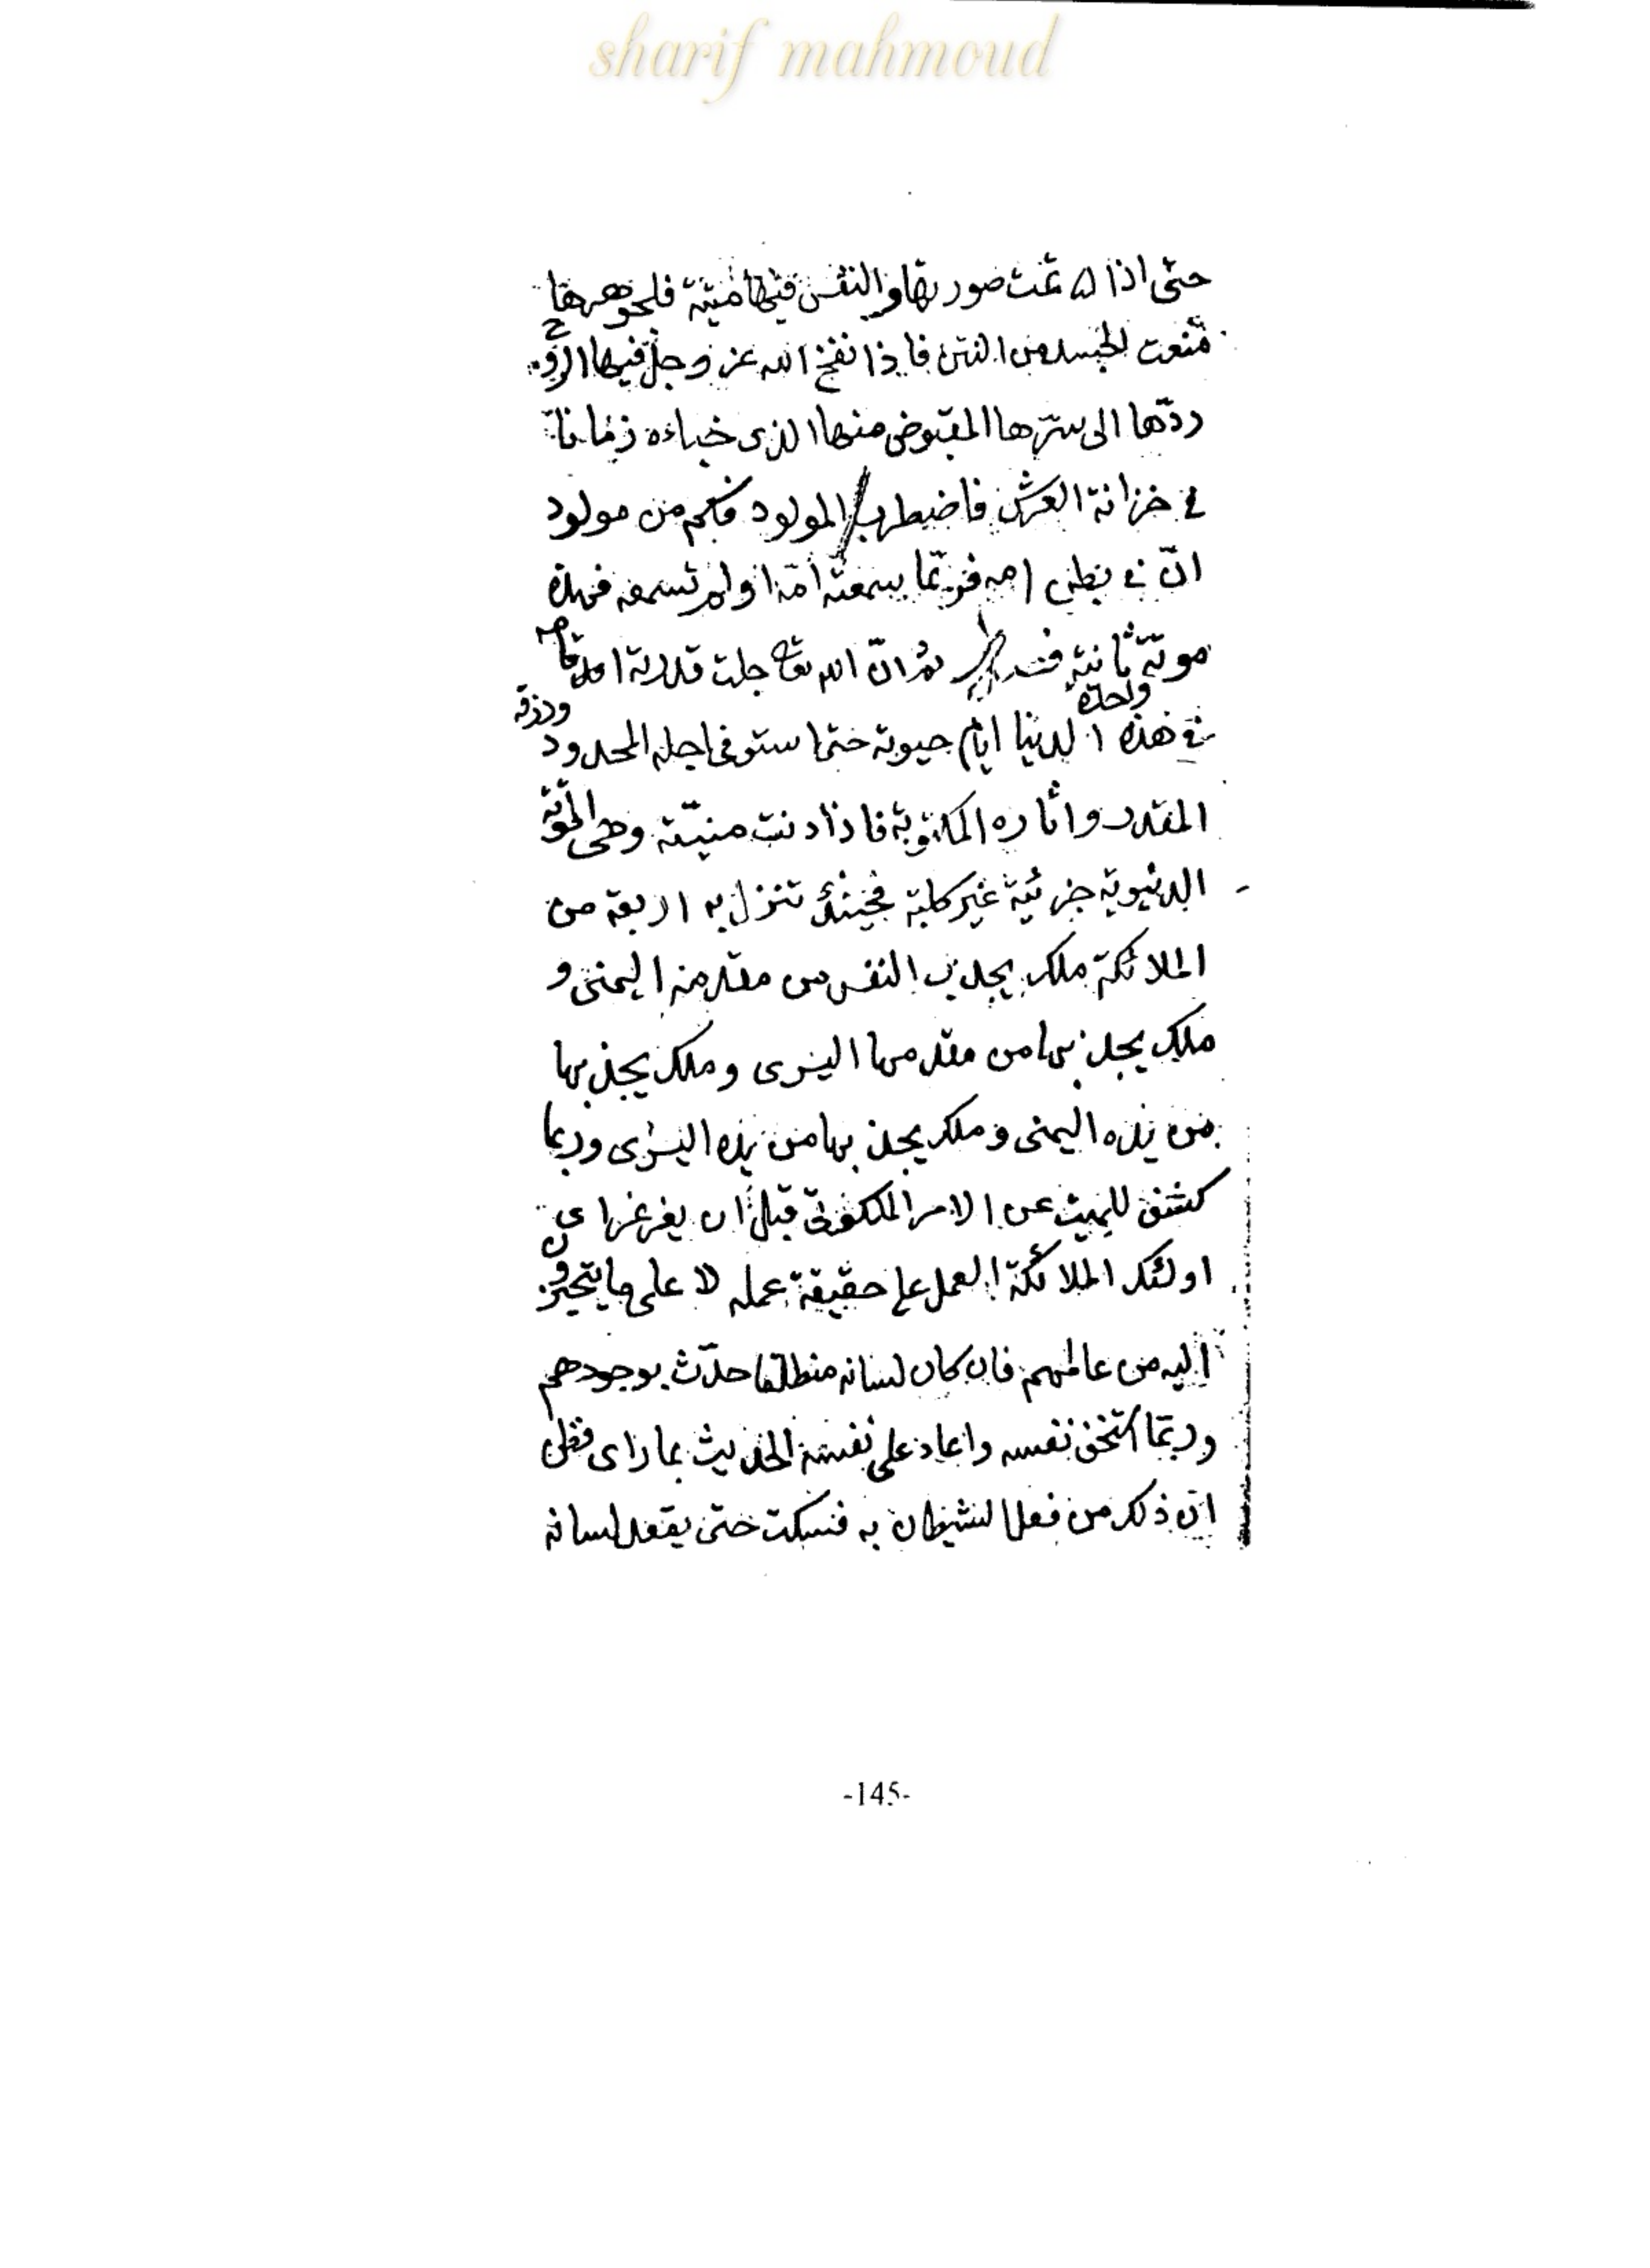 sharif mahmoud
حتى اذا تمت صورتها والنفس فيها ميتة فلجوهرها
منعت الجسد من النتن فاذا نفخ الله عز وجل فيها الروح
ردّها الى سرّها المقبوض منها الذى خباءه زمانا
فى خزانة العرش فاضطرب المولود فكم من مولود
انّ فى بطن امه فربّما سمعته امّه او لم تسمعه فهذه
موتة ثانية ثم انّ الله تعا جلت قدرته اقامه
واحدة
فى هذه الدنيا ايام حيوته حتى استوفى اجله المحدود ورزقه
المقدر واثاره المكتوبة فاذا دنت منيّته وهى الموتة
الدنيوية جزئية غير كلية فحينئذ تنزل به اربعة من
الملائكة ملك يجذب النفس من مقدمه اليمنى و
ملك يجذبها من مقدمها اليسرى وملك يجذبها
من يده اليمنى وملك يجذبها من يده اليسرى وربما
كشف للميت عن الامر الملكوتى قبل ان يغرغر
اولئك الملائكة العمل على حقيقة عمله لا على ما
اليه من عالمهم فان كان لسانه منطلقا حدّث بوجودهم
وربّما نفسه واعاد على نفسه الحديث بما راى فظن
انّ ذلك من فعل الشيطان به فسكت حتى يقعد لسانه
-145-